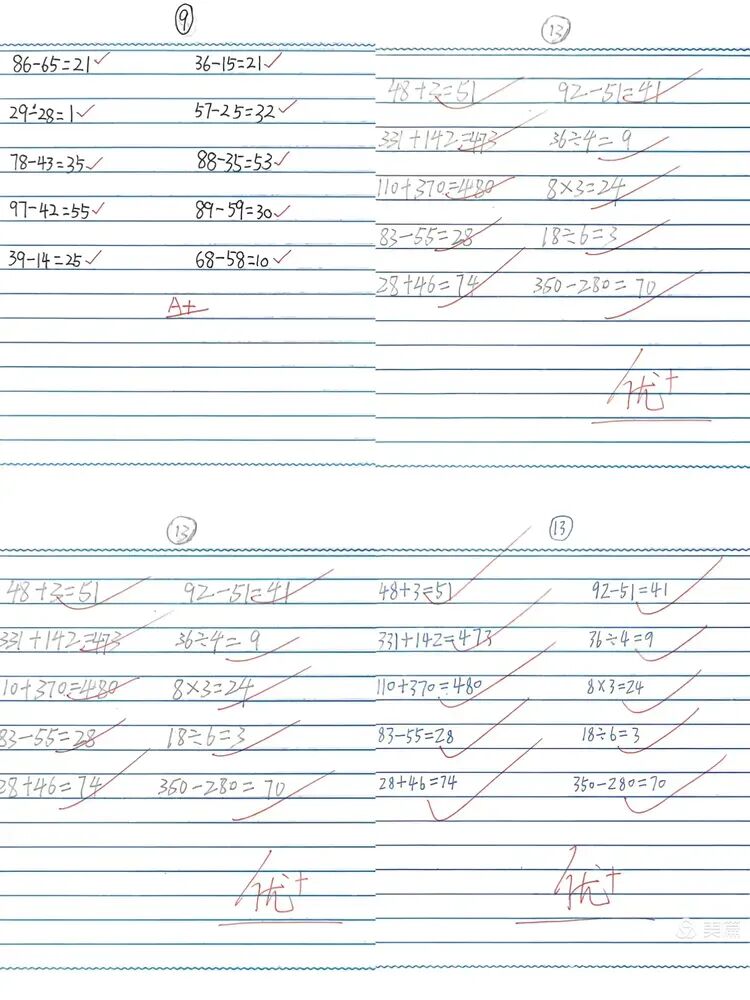 ⑨
86-65=21 36-15=21
29-28=1 57-25=32
78-43=35 88-35=53
97-42=55 89-59=30
39-14=25 68-58=10
A+
⑬
48+3=51 92-51=41
331+142=473 36÷4=9
110+370=480 8×3=24
83-55=28 18÷6=3
28+46=74 350-280=70
优+
⑬
48+3=51 92-51=41
331+142=473 36÷4=9
110+370=480 8×3=24
83-55=28 18÷6=3
28+46=74 350-280=70
优+
⑬
48+3=51 92-51=41
331+142=473 36÷4=9
110+370=480 8×3=24
83-55=28 18÷6=3
28+46=74 350-280=70
优+
美篇